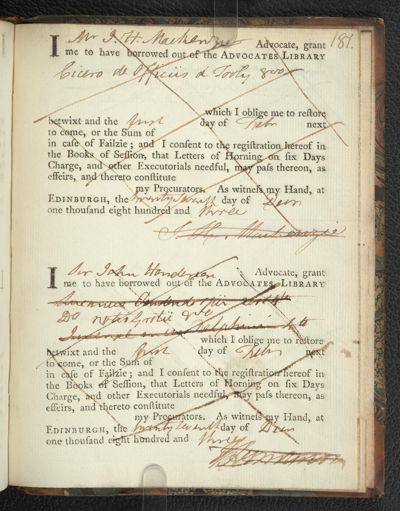 181.
I Mr J. H. Mackenzie Advocate, grant
me to have borrowed out of the ADVOCATES LIBRARY
Cicero de Officiis a Tooly 8vo
which I oblige me to reſtore
betwixt and the first day of Febr next
to come, or the Sum of
in caſe of Failzie; and I conſent to the regiſtration hereof in
the Books of Seſſion, that Letters of Horning on ſix Days
Charge, and other Executorials needful, may paſs thereon, as
effeirs, and thereto conſtitute
my Procurators. As witneſs my Hand, at
EDINBURGH, the twenty seventh day of Decr
one thouſand eight hundred and three
J. H. Mackenzie
I Sir John Henderson Advocate, grant
me to have borrowed out of the ADVOCATES LIBRARY
Do notis 8vo
4to
which I oblige me to reſtore
betwixt and the first day of Febr next
to come, or the Sum of
in caſe of Failzie; and I conſent to the regiſtration hereof in
the Books of Seſſion, that Letters of Horning on ſix Days
Charge, and other Executorials needful, may paſs thereon, as
effeirs, and thereto conſtitute
my Procurators. As witneſs my Hand, at
EDINBURGH, the twenty seventh day of Decr
one thouſand eight hundred and three